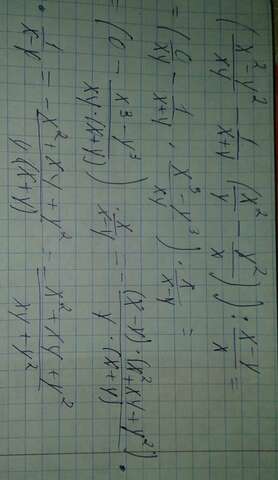 (x²-y²/xy - 1/x+y (x²/y - y²/x)) : x-y/x =
= (0/xy - 1/x+y · x³-y³/xy) · x/x-y =
= (0 - x³-y³/xy·(x+y)) · x/x-y = - (x-y)·(x²+xy+y²)/y·(x+y) ·
· 1/x-y = - x²+xy+y²/y(x+y) = - x²+xy+y²/xy+y²